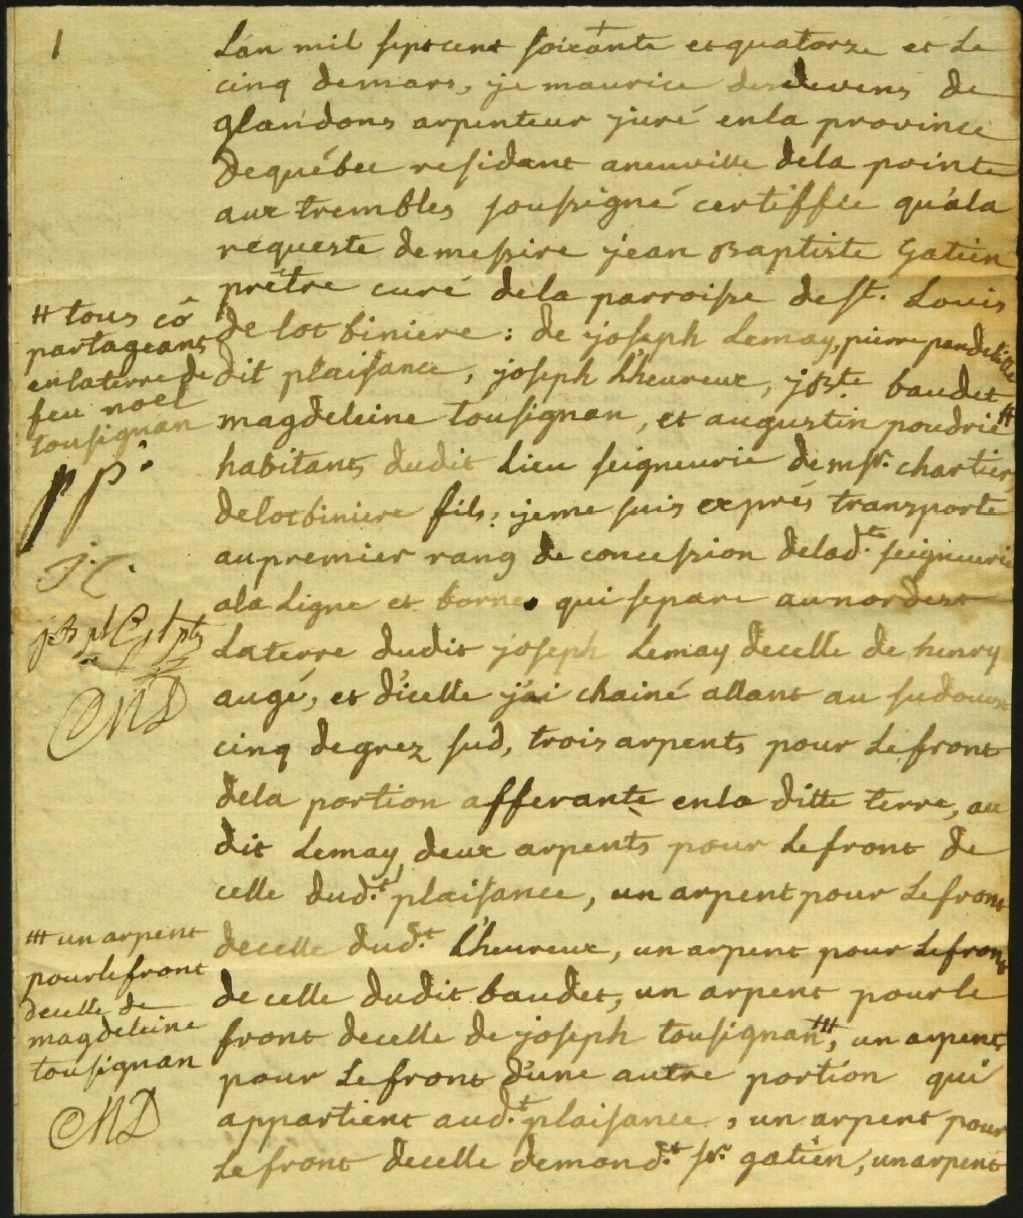 1
L'an mil sept cent soixante et quatorze et Le
cinq de mars, je maurice desdevens de
glandons arpenteur juré en la province
de québec residant a neuville de la pointe
aux trembles soussigné certiffie qu'a la
requeste de messire jean Baptiste Gatien
prêtre curé de la parroisse de st. Louis
de lotbiniere : de joseph Lemay, pierre
dit plaisance, joseph L'heureux, j Bte. baudet
magdeleine tousignan, et augustin poudrié #
habitants dudit Lieu seigneurie de msr. chartier
de lotbiniere fils, je me suis exprés transporté
au premier rang de concession de lad.te seigneurie
a la Ligne et borne qui separe au nordest
La terre dudit joseph Lemay de celle de henry
augé, et d'icelle j'ai chainé allant au sudouest
cinq degrez sud, trois arpents pour Le front
de la portion afferante en la ditte terre, au
dit Lemay, deux arpents pour Le front de
celle dud.t plaisance, un arpent pour Le front
de celle dud.t L'heureux, un arpent pour Le front
de celle dudit baudet, un arpent pour le
front de celle de joseph tousignan ⧻, un arpent
pour Le front d'une autre portion qui
appartient aud.t plaisance, un arpent pour
Le front de celle de mond.t sr. gatien, un arpent
# tous cô
partageants
en la terre de
feu noel
tousignan
pp.
MD
⧻ un arpent
pour le front
de celle de
magdeleine
tousignan
MD